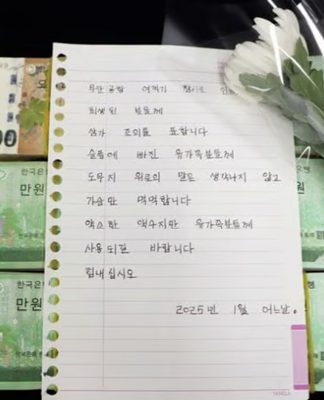 무안공항 여객기 참사로 인해
희생된 분들께
삼가 조의를 표합니다
슬픔에 빠진 유가족분들께
도무지 위로의 말도 생각나지 않고
가슴만 먹먹합니다
약소한 액수지만 유가족분들께
사용되면 바랍니다
힘내십시오
2025년 1월 어느날.
한국은행
만원
한국은행
만원